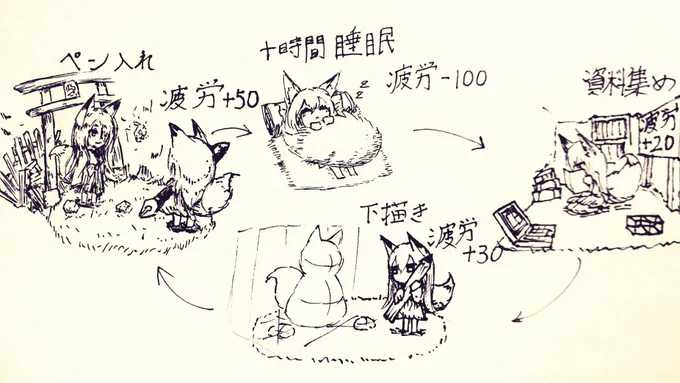 ペン入れ
疲労+50
十時間睡眠
疲労-100
資料集め
疲労
+20
下描き
疲労
+30
z
z